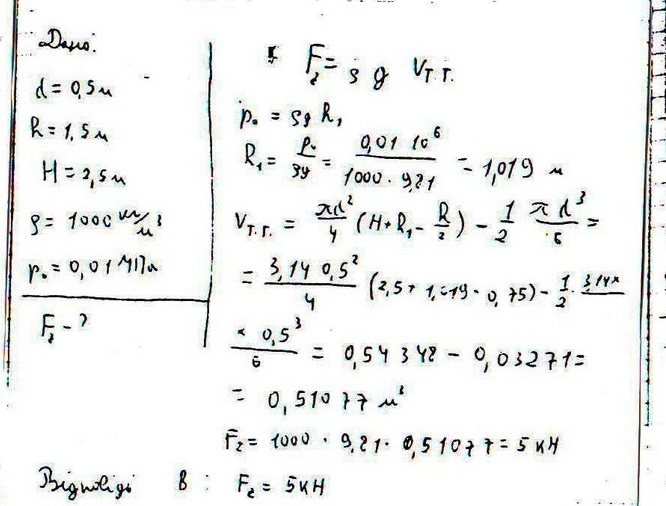 Дано:
d = 0,5 м
h = 1,5 м
H = 2,5 м
ρ = 1000 кг/м³
p₀ = 0,01 МПа
F₂ - ?
F₂ = ρ g V т.г.
p₀ = ρg h₁
h₁ = p₀/ρg = 0,01 10⁶/1000 · 9,81 = 1,019 м
V т.г. = πd²/4 (H + h₁ - h/2) - 1/2 πd³/6 =
= 3,14 0,5²/4 (2,5 + 1,019 - 0,75) - 1/2 · 3,14×
× 0,5³/6 = 0,54348 - 0,03271 =
= 0,51077 м³
F₂ = 1000 · 9,81 · 0,51077 = 5 кН
Відповідь В : F₂ = 5 кН